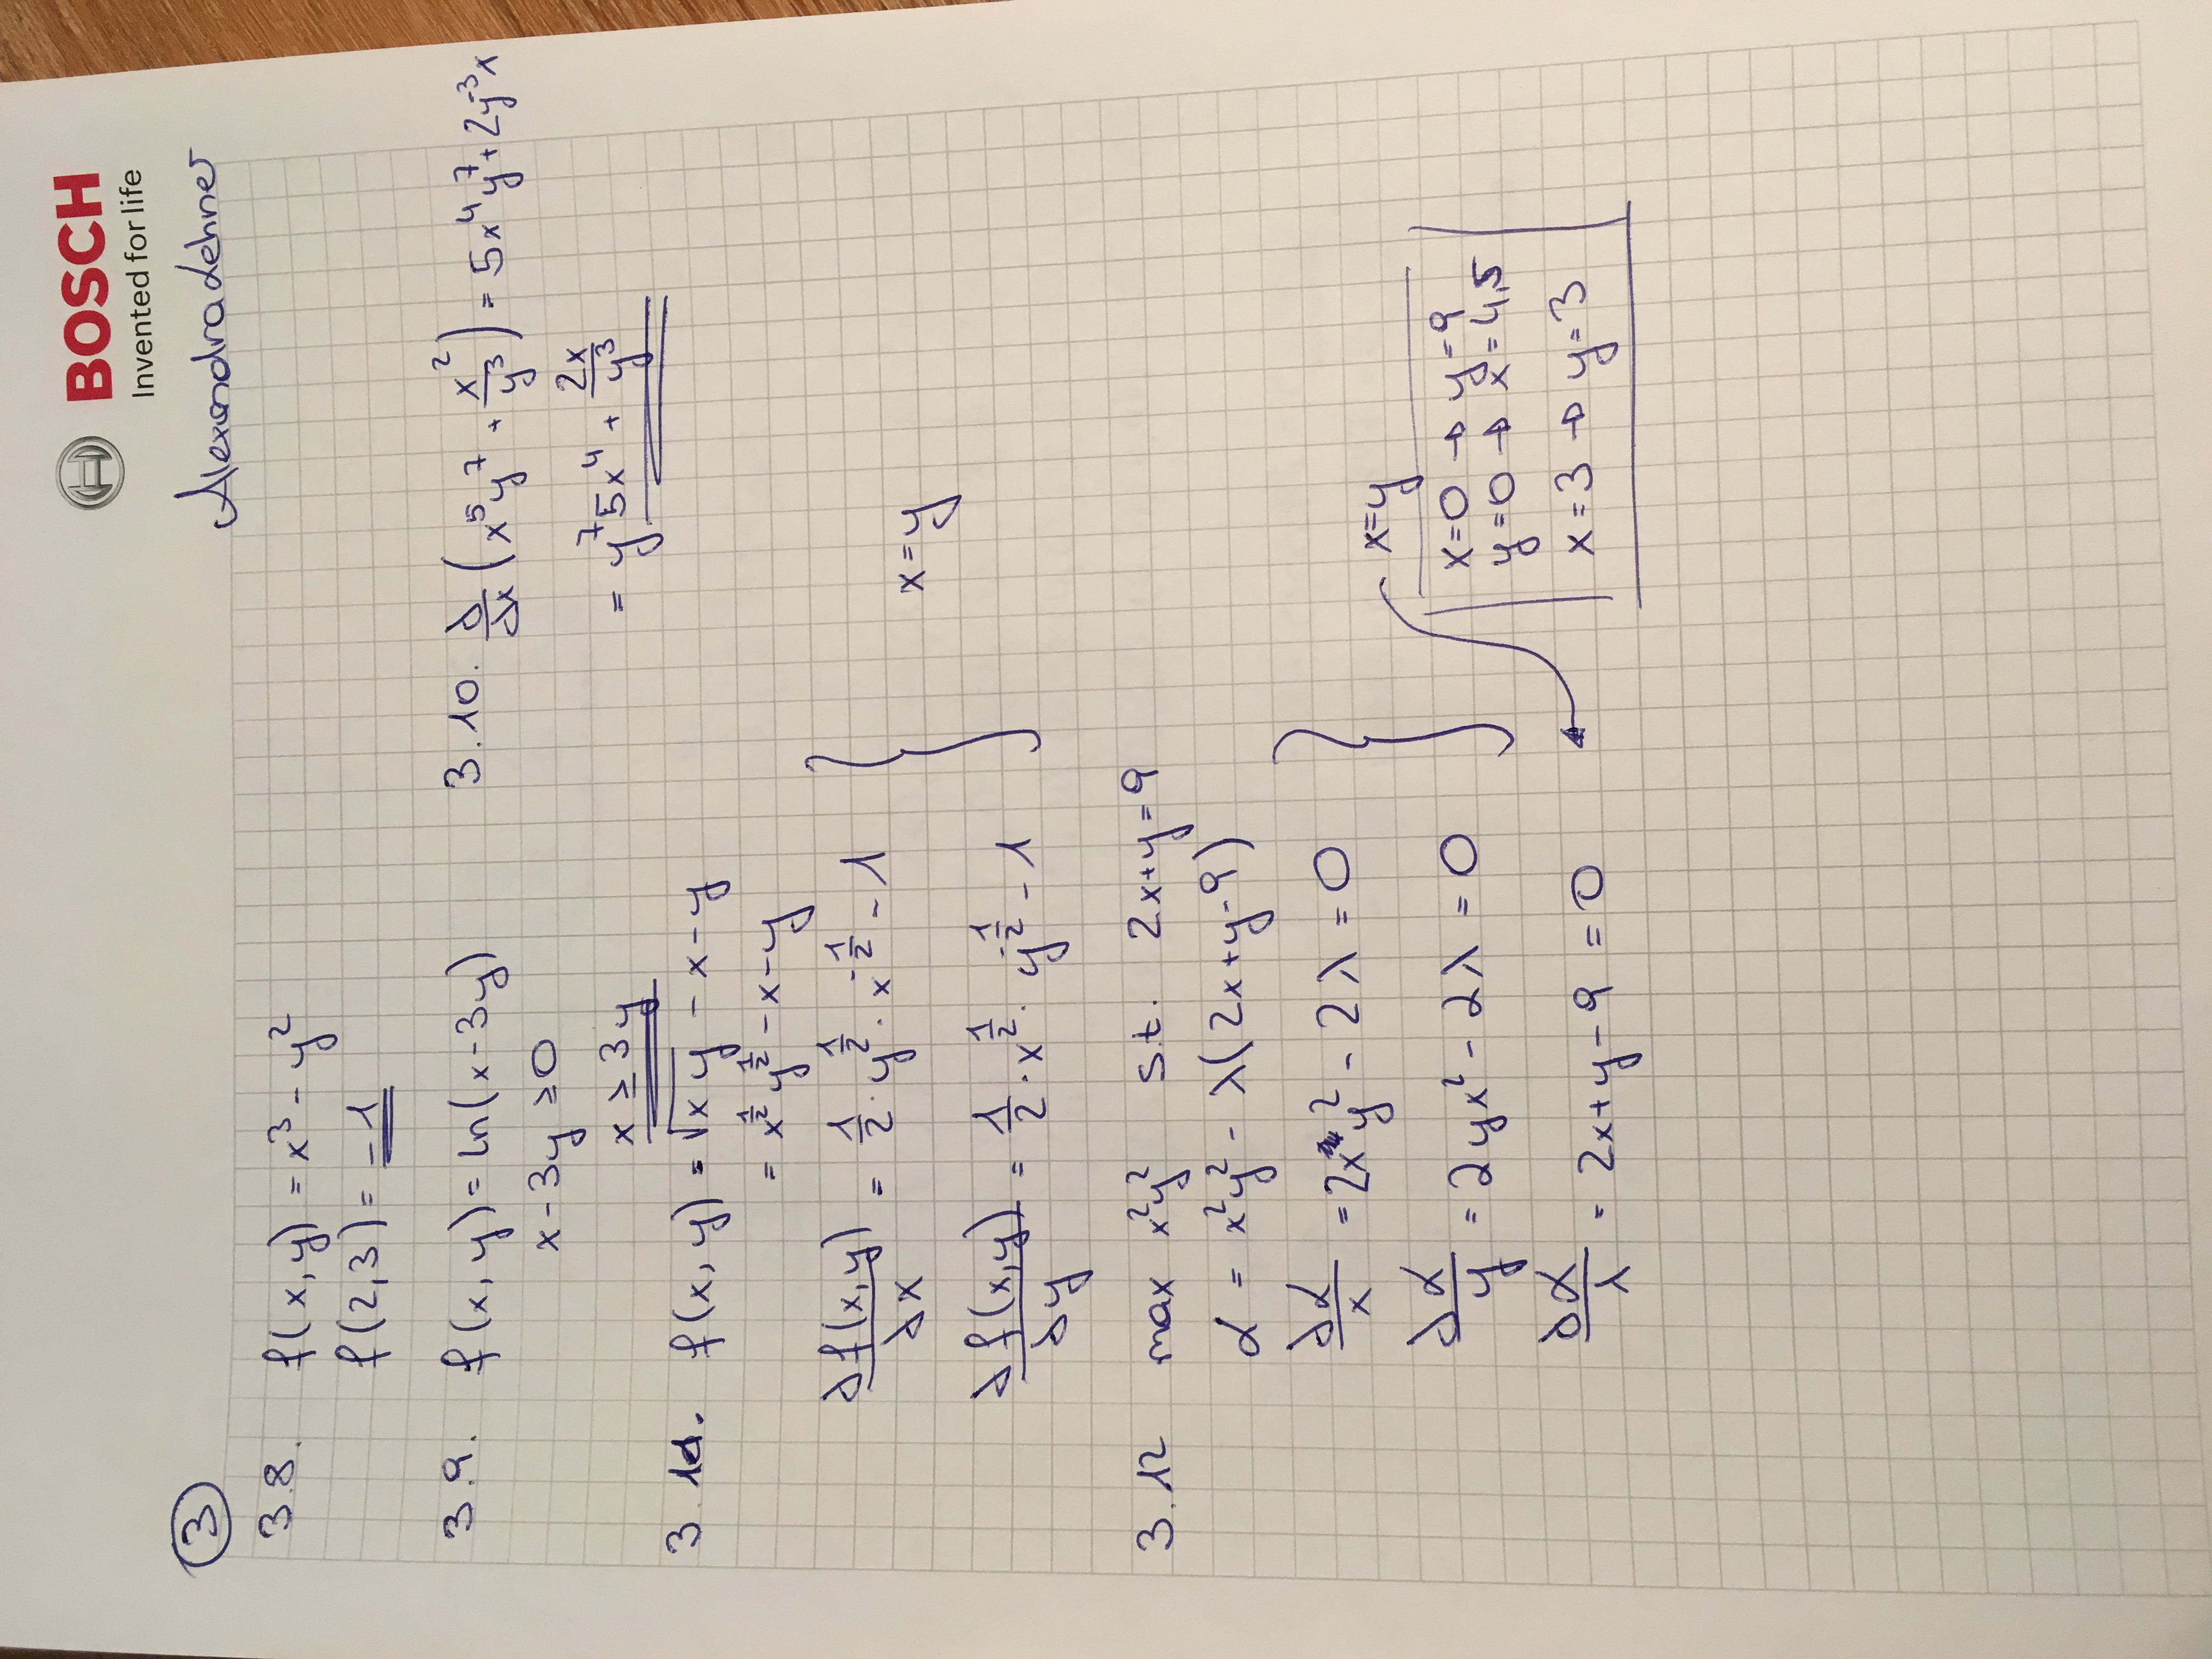 BOSCH
Invented for life
3
Alexandra Lehner
3.8. f(x,y) = x³ - y²
f(2,3) = -1
3.9. f(x,y) = ln(x-3y)
x - 3y ≥ 0
x ≥ 3y
3.10. d/dx (x⁵y⁷ + x²/y³) = 5x⁴y⁷ + 2y⁻³x
= y⁷5x⁴ + 2x/y³
3.11. f(x,y) = √xy - x - y
= x^½ y^½ - x - y
∂f(x,y)/∂x = 1/2 · y^½ · x^-½ - 1
x = y
∂f(x,y)/∂y = 1/2 · x^½ · y^-½ - 1
3.12 max x²y² s.t. 2x+y=9
L = x²y² - λ(2x+y-9)
∂L/x = 2xy² - 2λ = 0
∂L/y = 2yx² - 2λ = 0
∂L/λ = 2x+y-9 = 0
x=y
x=0 → y=9
y=0 → x=4,5
x=3 → y=3